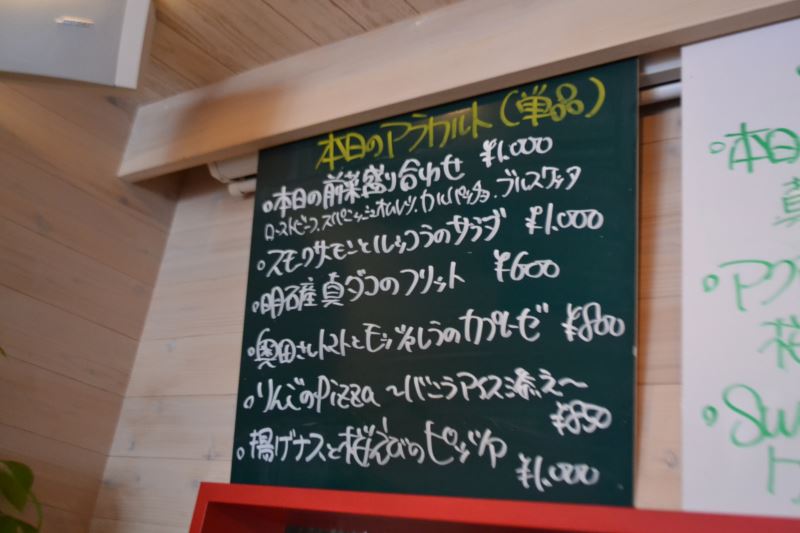 本日のアラカルト(単品)
。本日の前菜盛り合わせ ¥1,000
ローストビーフ、スパニッシュオムレツ、カルパッチョ、ブルスケッタ
。スモークサーモンとルッコラのサラダ ¥1,000
。明石産真ダコのフリット ¥600
。奥田さんトマトとモッツァレラのカプレーゼ ¥800
。りんごのPizza 〜バニラアイス添え〜
¥850
。揚げナスと桜えびのピッツァ
¥1,000
。本日
。アク
桜
。Sw